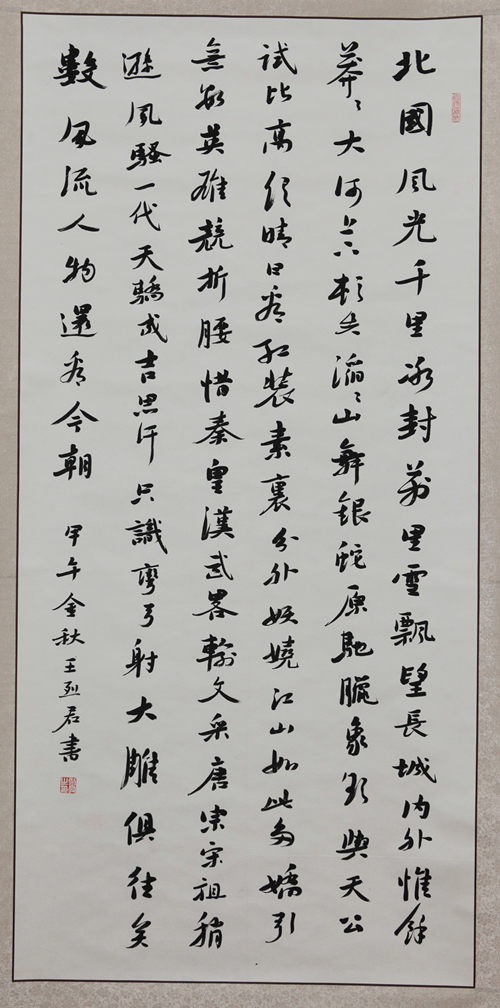 北國風光千里冰封萬里雪飄望長城內外惟餘
莽〻大河上下頓失滔〻山舞銀蛇原馳臘象欲與天公
試比高須晴日看紅裝素裹分外妖嬈江山如此多嬌引
無數英雄競折腰惜秦皇漢武畧輸文采唐宗宋祖稍
遜風騷一代天驕成吉思汗只識彎弓射大雕俱往矣
數風流人物還看今朝 甲午金秋王烈君書